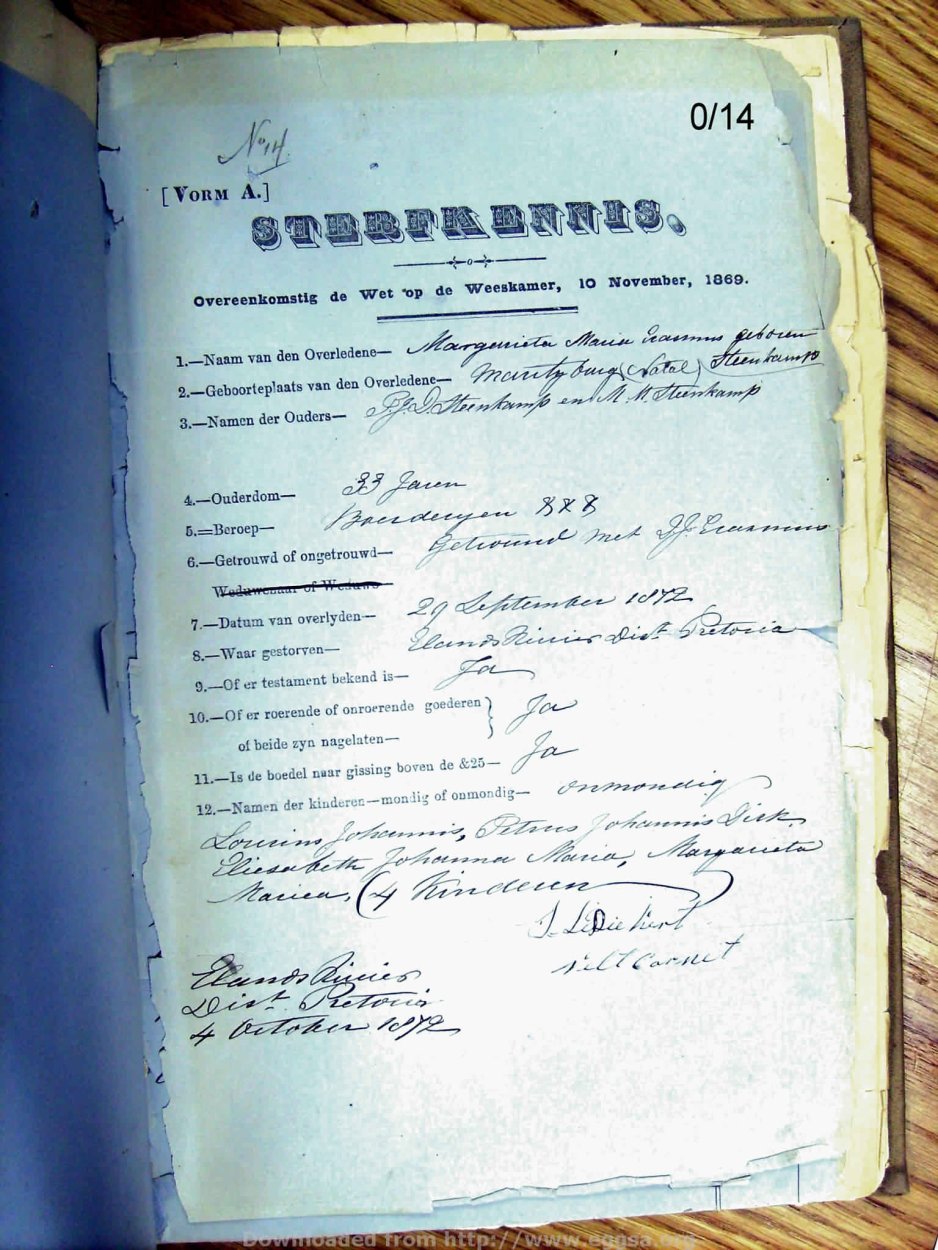 0/14
No 14
[VORM A.]
STERFKENNIS.
Overeenkomstig de Wet op de Weeskamer, 10 November, 1869.
1.—Naam van den Overledene— Margarieta Maria Erasmus geboren
Steenkamp
2.—Geboorteplaats van den Overledene— Maritzburg (Natal)
3.—Namen der Ouders— Steenkamp en M. M. Steenkamp
4.—Ouderdom— 33 Jaren
5.=Beroep— Boerderyen
6.—Getrouwd of ongetrouwd— Getrouwd met Erasmus
Weduwenaar of Weduwe
7.—Datum van overlyden— 29 September 1872
8.—Waar gestorven— Elands Rivier Dist. Pretoria
9.—Of er testament bekend is— Ja
10.—Of er roerende of onroerende goederen } Ja
of beide zyn nagelaten—
11.—Is de boedel naar gissing boven de &25— Ja
12.—Namen der kinderen—mondig of onmondig— onmondig
Lourins Johannis, Petrus Johannis Dirk.
Eliesabeth Johanna Maria, Margarieta
Mariea, (4 Kinderen)
Velt Cornet
Elands Rivier
Dist. Pretoria
4 October 1872
Downloaded from http://www.eggsa.org